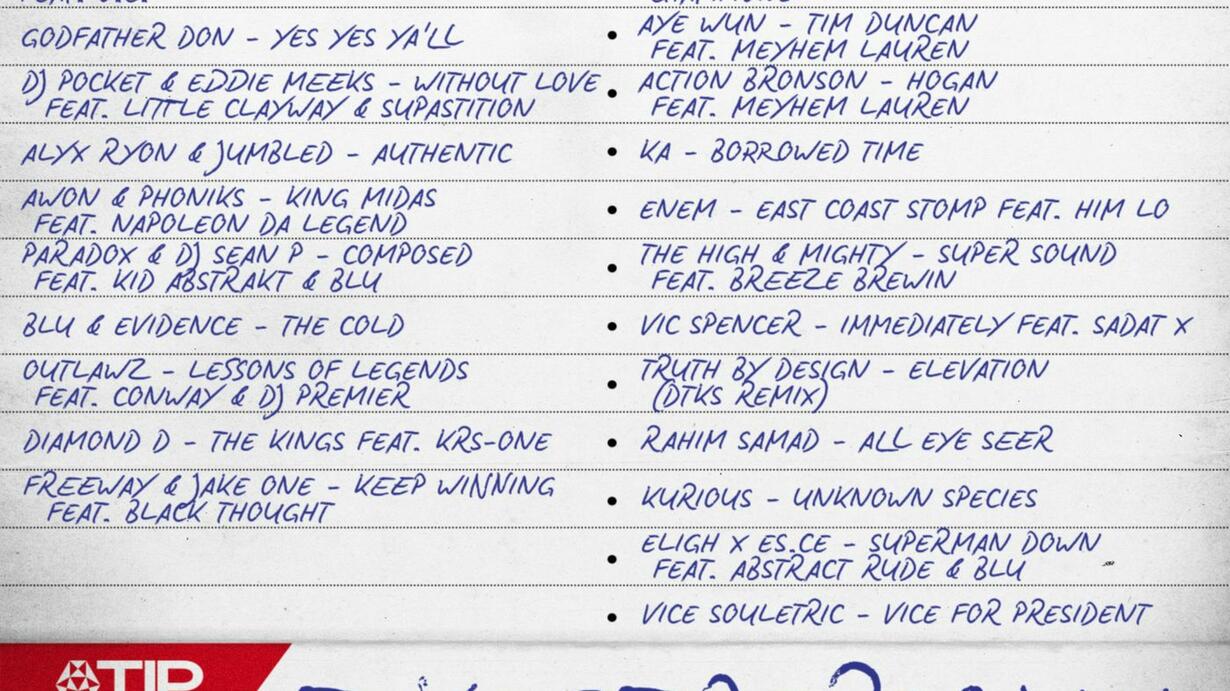 GODFATHER DON - YES YES YA'LL
DJ POCKET & EDDIE MEEKS - WITHOUT LOVE
FEAT. LITTLE CLAYWAY & SUPASTITION
ALYX RYON & JUMBLED - AUTHENTIC
AWON & PHONIKS - KING MIDAS
FEAT. NAPOLEON DA LEGEND
PARADOX & DJ SEAN P - COMPOSED
FEAT. KID ABSTRAKT & BLU
BLU & EVIDENCE - THE COLD
OUTLAWZ - LESSONS OF LEGENDS
FEAT. CONWAY & DJ PREMIER
DIAMOND D - THE KINGS FEAT. KRS-ONE
FREEWAY & JAKE ONE - KEEP WINNING
FEAT. BLACK THOUGHT
• AYE WUN - TIM DUNCAN
FEAT. MEYHEM LAUREN
• ACTION BRONSON - HOGAN
FEAT. MEYHEM LAUREN
• KA - BORROWED TIME
• ENEM - EAST COAST STOMP FEAT. HIM LO
• THE HIGH & MIGHTY - SUPER SOUND
FEAT. BREEZE BREWIN
• VIC SPENCER - IMMEDIATELY FEAT. SADAT X
• TRUTH BY DESIGN - ELEVATION
(DTKS REMIX)
• RAHIM SAMAD - ALL EYE SEER
• KURIOUS - UNKNOWN SPECIES
• ELIGH X ES.CE - SUPERMAN DOWN
FEAT. ABSTRACT RUDE & BLU
• VICE SOULETRIC - VICE FOR PRESIDENT